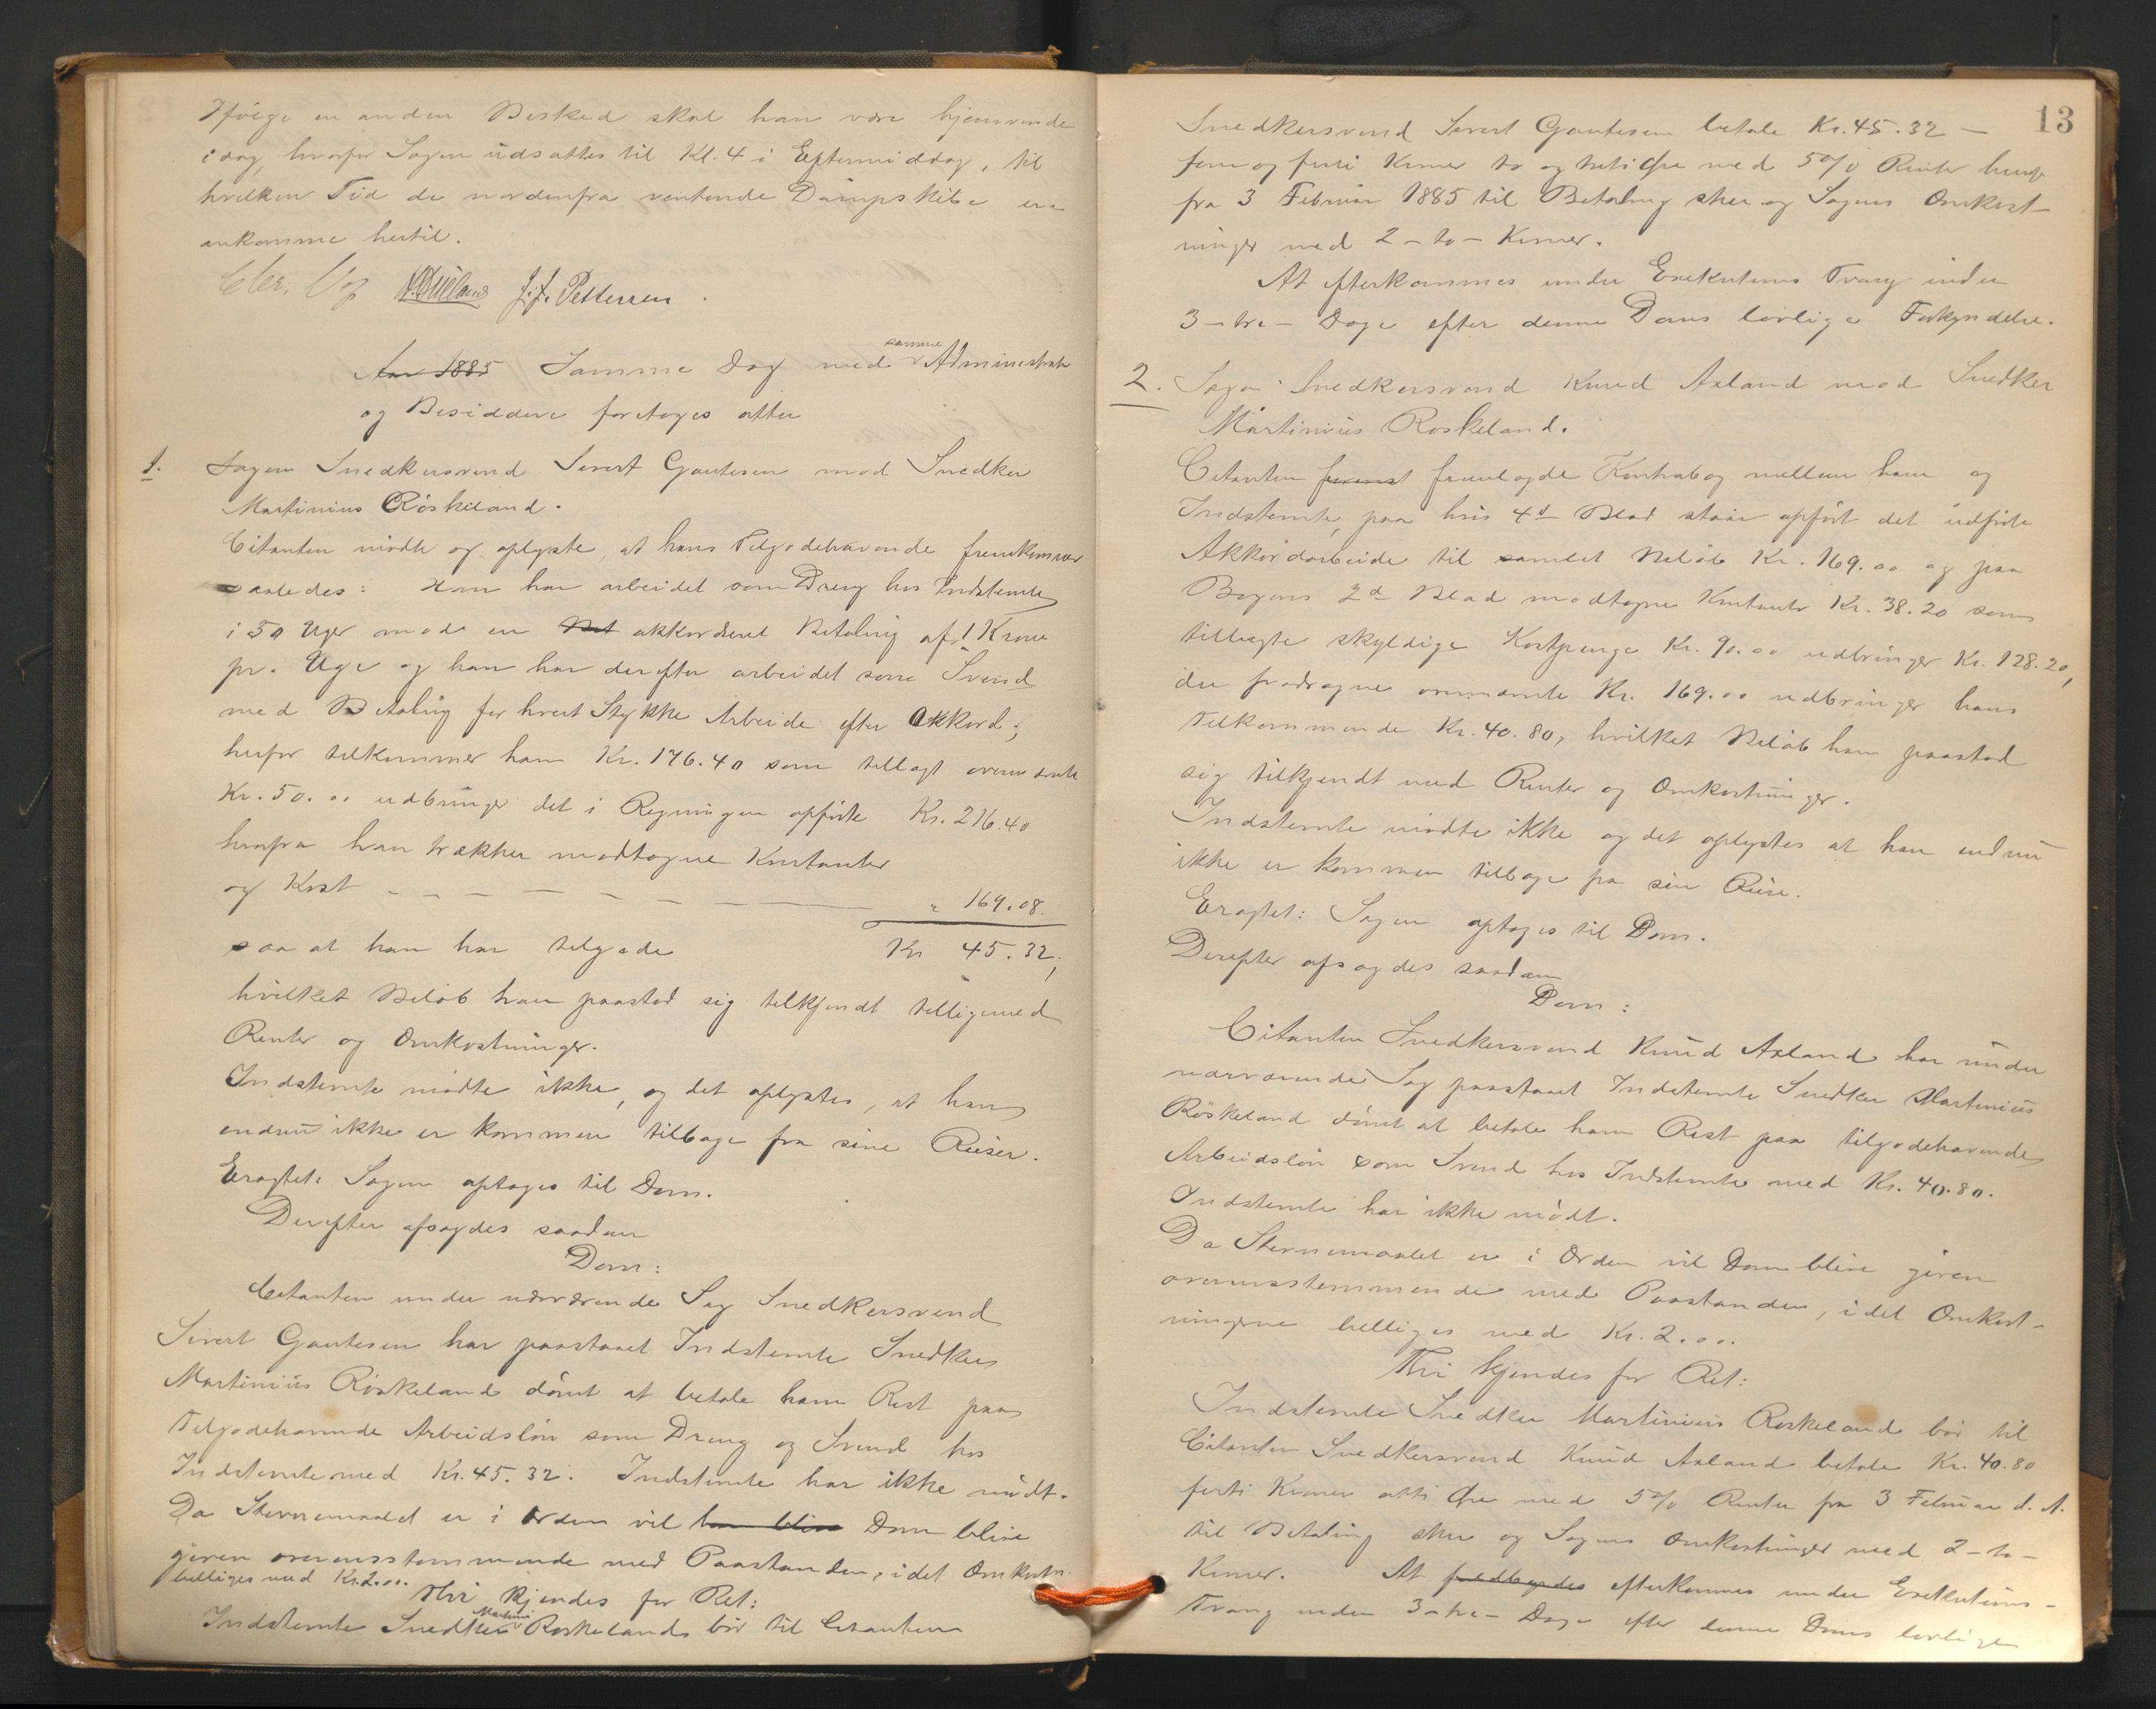 Ifølge en anden Besked skal han være hjemvende
idag, hvorfor Sagen udsattes til Kl. 4 i Eftermiddag, til
hvilken Tid de nordenfra ventende Dampskibe ere
ankomme hertil.
J. J. Pettersen.
Aar 1885 Samme Dag med samme Administrator
og Besiddere foretoges atter
1. Sagen Snedkersvend Sivert Gautesen mod Snedker
Martinius Röskeland.
Citanten mödte og oplyste, at hans Tilgodehavende fremkommer
saaledes: Han har arbeidet som Dreng hos Indstemte
i 50 Uger mod en Bet akkorderet Betaling af 1 Krone
pr. Uge og han har derefter arbeidet som Svend
med Betaling for hvert Stykke Arbeide efter Akkord;
herfor tilkommer ham Kr. 176.40 som tillagt ovennævnte
Kr. 50.00 udbringer det i Regningen opförte Kr. 216.40
hvorfra han trækker modtagne Kontanter
og Kost " 169.08.
saa at han har tilgode Kr 45.32;
hvilket Belöb han paastod sig tilkjendt tilligemed
Renter og Omkostninger.
Indstemte mödte ikke, og det oplystes, at han
endnu ikke er kommen tilbage fra sine Reiser.
Eragtet: Sagen optages til Dom.
Derefter afsagdes saadan
Dom:
Citanten under nærværende Sag Snedkersvend
Sivert Gautesen har paastaaet Indstemte Snedker
Martinius Röskeland dömt at betale ham Rest paa
Tilgodehavende Arbeidslön som Dreng og Svend hos
Indstemte med Kr. 45.32. Indstemte har ikke mödt.
Da Stevnemaalet er i Orden vil han blive Dom blive
given overensstemmende med Paastanden, idet Omkostn.
billiges med Kr. 2.00.
Thi kjendes for Ret:
Indstemte Snedker Martini Roskeland bör til Citanten
13
Snedkersvend Sivert Gautesen betale Kr. 45.32 –
fem og forti Kroner to og treti Øre med 5% Renter heraf
fra 3 Februar 1885 til Betaling sker og Sagens Omkost-
ninger med 2 – to – Kroner.
At efterkommes under Exekutions Tvang inden
3 – tre – Dage efter denne Doms lovlige Forkyndelse.
2. Sagen Snedkersvend Knud Axland mod Snedker
Martinius Roskeland.
Citanten fremlagde Kontrabog mellem ham og
Indstemte, paa hvis 4de Blad staar opfört det udförte
Akkordarbeide til samlet Belöb Kr. 169.00 og paa
Bogens 2det Blad modtagne Kontanter Kr. 38.20 som
tillagte skyldige Kostpenge Kr. 90.00 udbringer Kr. 128.20,
der fradragne ovennævnte Kr. 169.00 udbringer hans
Tilkommende Kr. 40.80, hvilket Belöb han paastod
sig tilkjendt med Renter og Omkostninger.
Indstemte mödte ikke og det oplystes at han endnu
ikke er kommen tilbage fra sin Reise.
Eragtet: Sagen optages til Dom.
Derefter afsagdes saadan
Dom:
Citanten Snedkersvend Knud Axland har under
nærværende Sag paastaaet Indstemte Snedker Martinius
Röskeland dömt at betale ham Rest paa tilgodehavende
Arbeidslön som Svend hos Indstemte med Kr. 40.80.
Indstemte har ikke mödt.
Da Stevnemaalet er i Orden vil Dom blive given
overensstemmende med Paastanden, idet Omkost-
ningerne billiges med Kr. 2.00.
Thi kjendes for Ret:
Indstemte Snedker Martinius Roskeland bör til
Citanten Snedkersvend Knud Axland betale Kr. 40.80
forti Kroner otti Øre med 5% Renter fra 3 Februar d. A.
til Betaling sker og Sagens Omkostninger med 2 – to –
Kroner. At efterkommes under Exekutions-
Tvang inden 3 – tre – Dage efter denne Doms lovlige